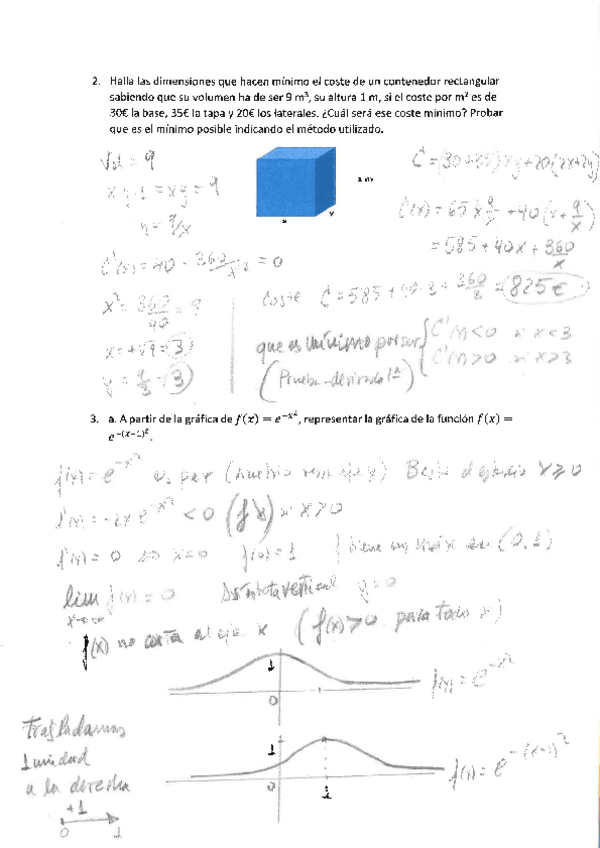 2. Halla las dimensiones que hacen mínimo el coste de un contenedor rectangular
sabiendo que su volumen ha de ser 9 m³, su altura 1 m, si el coste por m² es de
30€ la base, 35€ la tapa y 20€ los laterales. ¿Cuál será ese coste mínimo? Probar
que es el mínimo posible indicando el método utilizado.
Vol = 9
x·y·1 = xy = 9
y = 9/x
x
y
C = (30+35)xy + 20(2x+2y)
C(x) = 65 x 9/x + 40(x + 9/x)
= 585 + 40x + 360/x
C'(x) = 40 - 360/x² = 0
x² = 360/40 = 9
x = +√9 = 3
y = 9/3 = 3
Coste C = 585 + 40·3 + 360/3 = 825€
que es mínimo por ser
C'(x) < 0 si x < 3
C'(x) > 0 si x > 3
(Prueba derivada 1ª)
3. a. A partir de la gráfica de f(x) = e^{-x²}, representar la gráfica de la función f(x) =
e^{-(x-1)²}.
f(x) = e^{-x²} es par (simetría resp eje y) x ≥ 0
f'(x) = -2x e^{-x²} < 0 (f ↘) si x > 0
f'(x) = 0 ⇔ x = 0 f(0) = 1 f tiene un máx en (0,1)
lim f(x) = 0 Asíntota vertical y = 0
x→∞
f(x) no corta al eje x (f(x) > 0 para todo x)
1
0
f(x) = e^{-x²}
Trasladamos
1 unidad
a la derecha
+1
0 1
1
0
1
f(x) = e^{-(x-1)²}